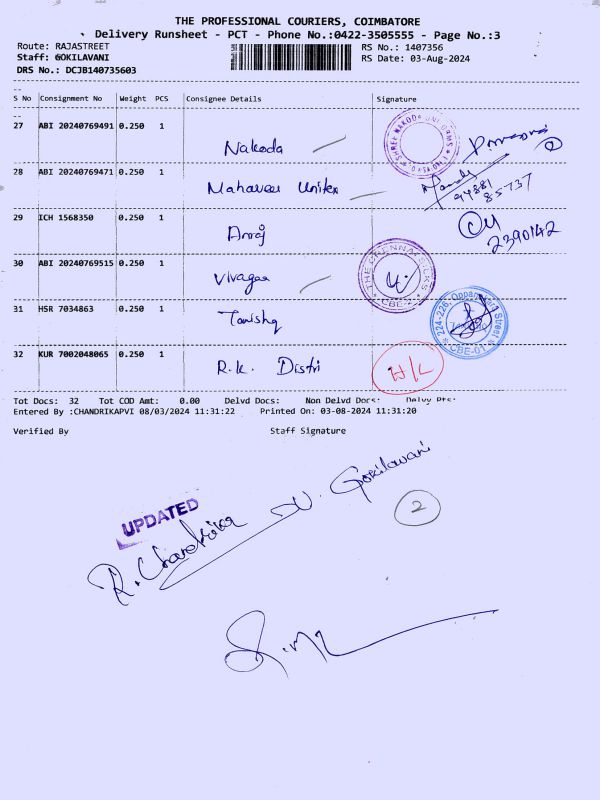 THE PROFESSIONAL COURIERS, COIMBATORE
Delivery Runsheet - PCT - Phone No.:0422-3505555 - Page No.:3
Route: RAJASTREET RS No.: 1407356
Staff: GOKILAVANI RS Date: 03-Aug-2024
DRS No.: DCJB140735603
S No Consignment No Weight PCS Consignee Details Signature
27 ABI 20240769491 0.250 1 Nakoda
28 ABI 20240769471 0.250 1 Mahaveer 94881 85737
29 ICH 1568350 0.250 1 2390142
30 ABI 20240769515 0.250 1
31 HSR 7034863 0.250 1 Tanishq 224-226, Oppanakara Street CBE-01
32 KUR 7002048065 0.250 1 R.K. Distri H/L
Tot Docs: 32 Tot COD Amt: 0.00 Delvd Docs: Non Delvd Docs: Delvy Pts:
Entered By :CHANDRIKAPVI 08/03/2024 11:31:22 Printed On: 03-08-2024 11:31:20
Verified By Staff Signature
UPDATED
R. Chandrika N. Gokilavani
2